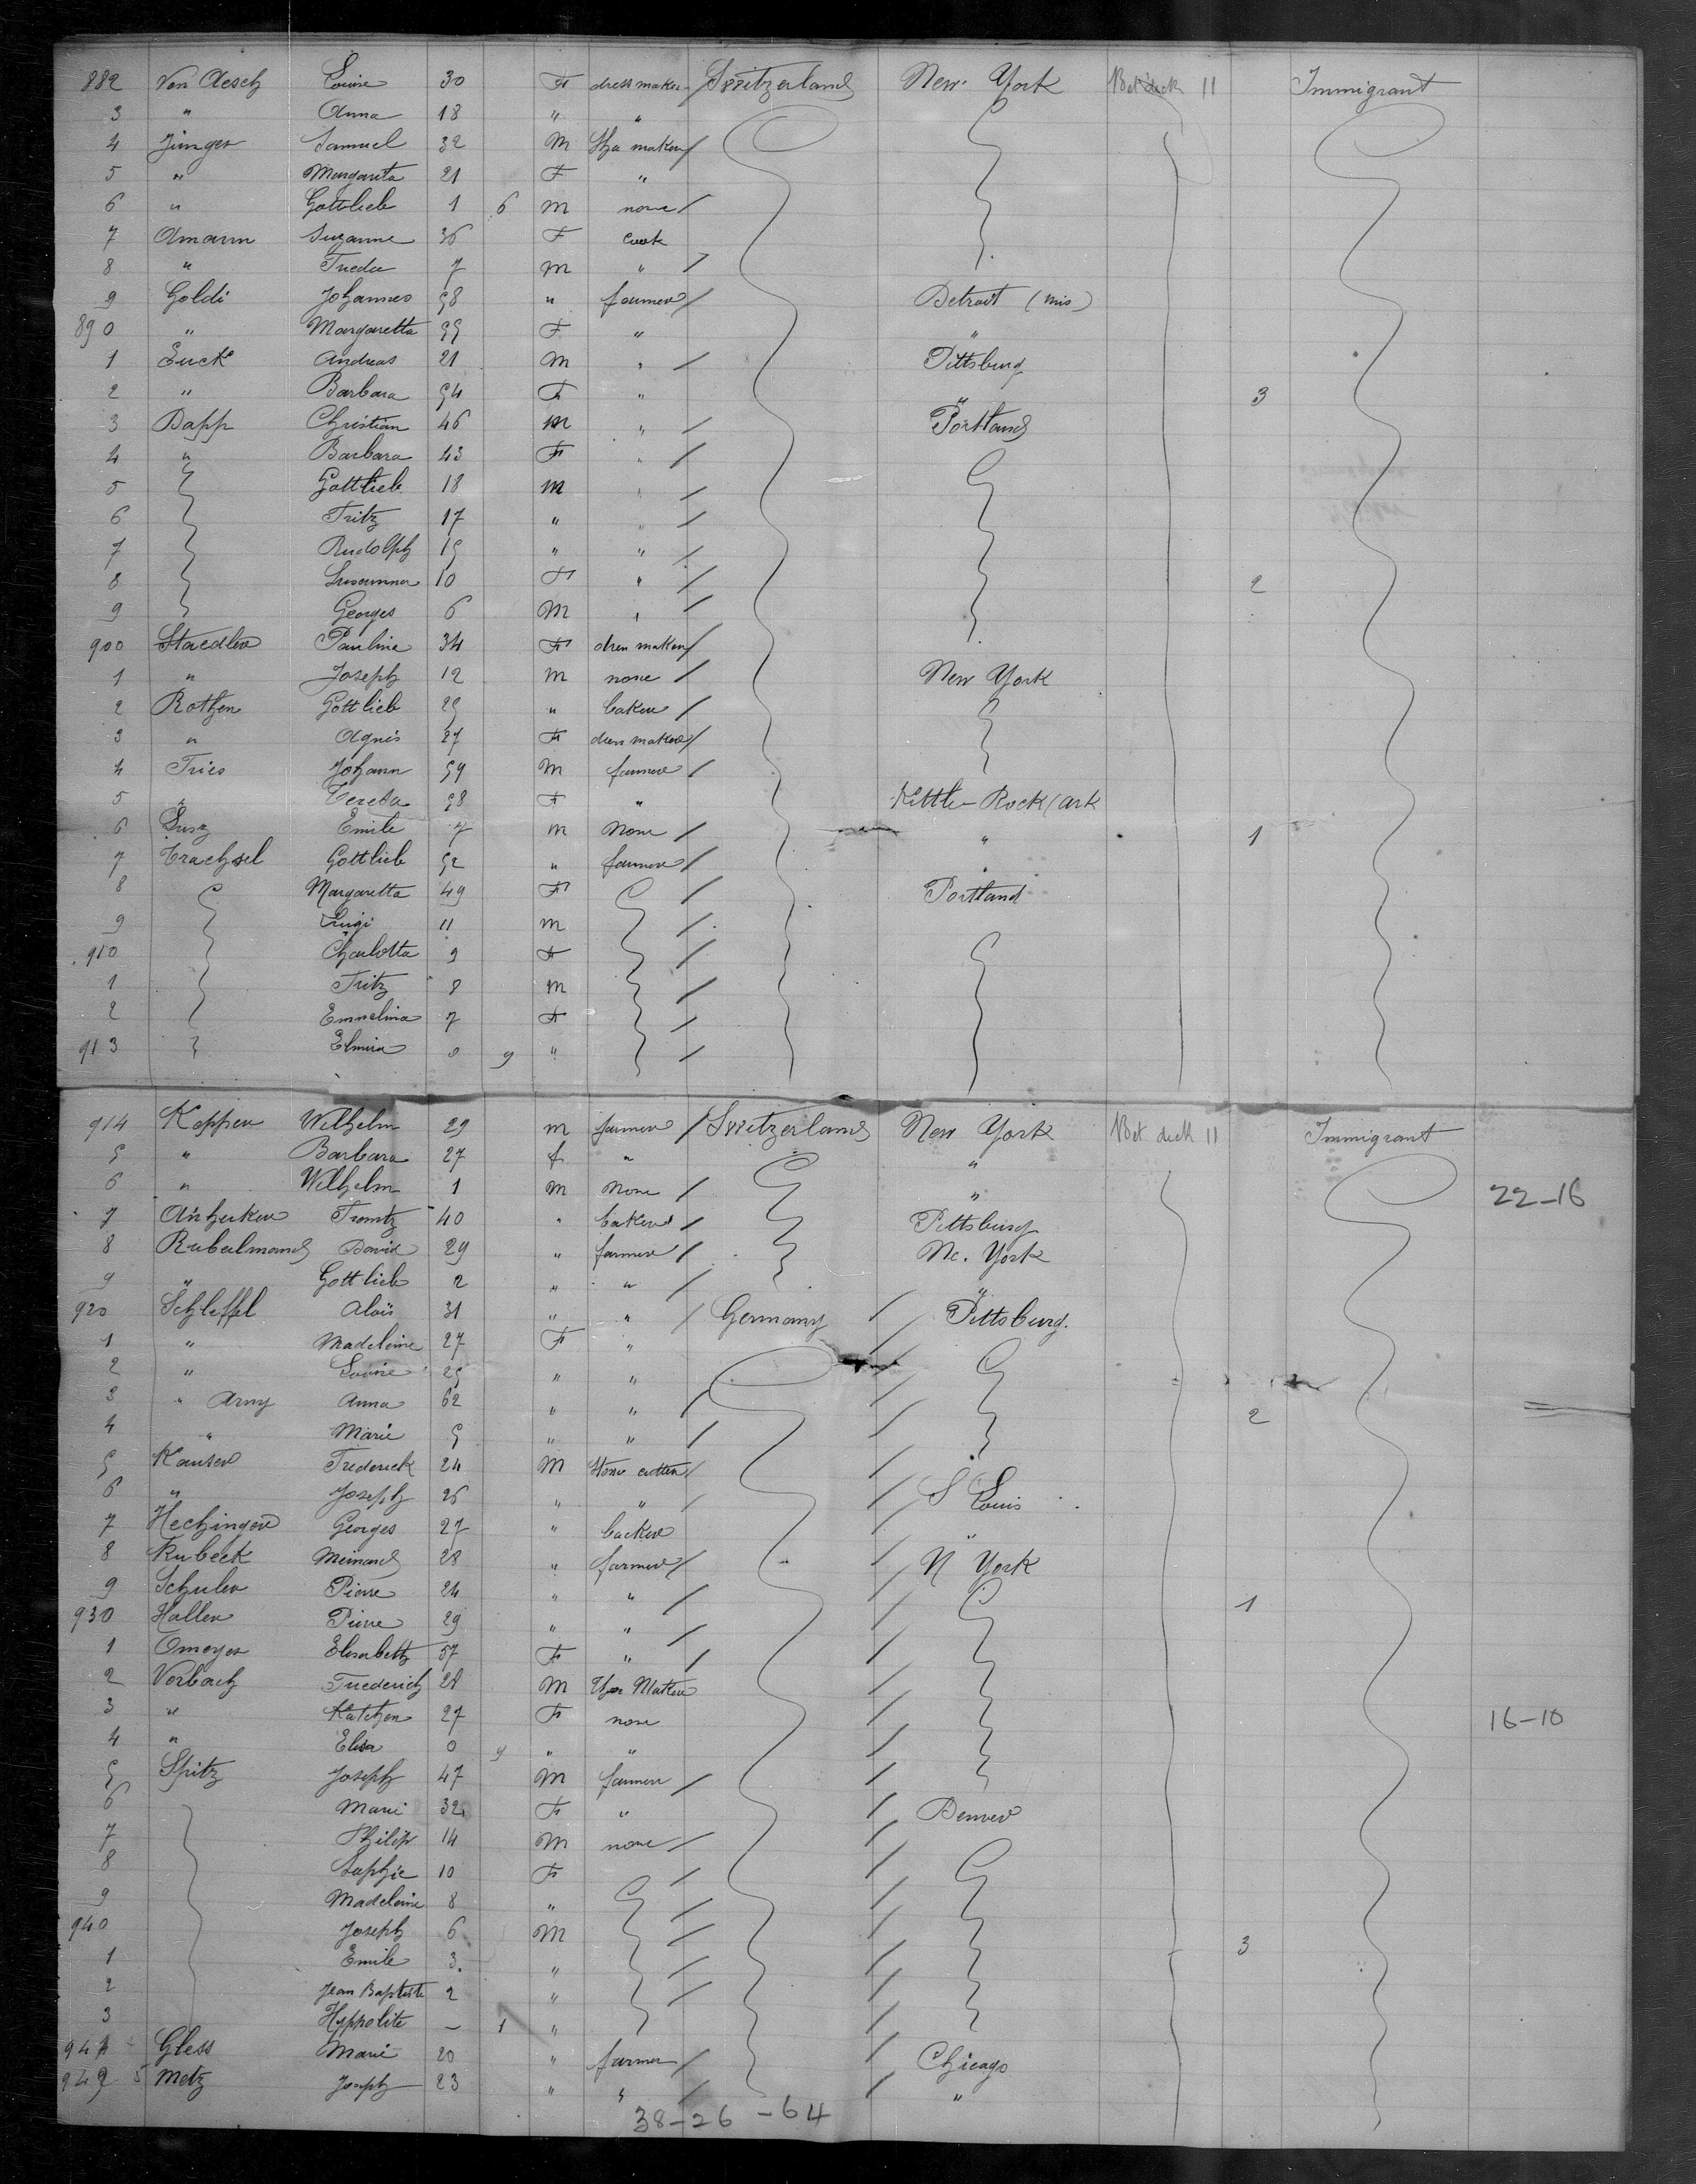 882 Von Aesch Louise 30 F dress maker Switzerland New York Bet deck 11 Immigrant
3 " Anna 18 " "
4 Jünger Samuel 32 M maker
5 " Margarita 21 F "
6 " Gottlieb 1 6 M none
7 Amann Suzanne 36 F cook
8 " Frieda 7 M "
9 Goldi Johannes 58 " farmer Detroit (mis)
890 " Margaretta 55 F " "
1 Andreas 21 M " Pittsburg
2 " Barbara 54 F " " 3
3 Dapp Christian 46 M " Portland
4 " Barbara 43 F "
5 Gottlieb 18 M "
6 Fritz 17 " "
7 Rudolph 15 " "
8 Susanna 10 F " 2
9 Georges 6 M "
900 Staedler Pauline 34 F dress maker
1 " Joseph 12 M none New York
2 Rothen Gottlieb 25 " baker
3 " Agnes 27 F dress maker
4 Fries Johann 59 M farmer
5 " Teresa 58 F " Little-Rock (ark
6 Susz Emile 7 M none " 1
7 Trachsel Gottlieb 52 " farmer "
8 Margaretta 49 F Portland
9 Luigi 11 M
910 Charlotta 9 F
1 Fritz 8 M
2 Emmelina 7 F
913 Elmira 0 9 "
914 Kopper Wilhelm 29 M farmer Switzerland New York Bet deck 11 Immigrant
5 " Barbara 27 f " "
6 " Wilhelm 1 M none " 22-16
7 40 " baker Pittsburg
8 David 29 " farmer Ne. York
9 " Gottlieb 2 " " "
920 Schleffel Aloïs 31 " " Germany Pittsburg.
1 " Madeleine 27 F "
2 " Louise 25 " "
3 " Army Anna 62 " " 2
4 " Marie 5 " "
5 Kauser Frederick 24 M Stone cutter
6 " Joseph 26 " " S Louis
7 Hechinger Georges 27 " backer "
8 Rubeck Meinard 28 " farmer N York
9 Schuler Pierre 24 " "
930 Haller Pierre 29 " " 1
1 Omeyer Elisabetth 57 F "
2 Vorbach Friederich 28 M Maker
3 " Katchen 27 F none 16-10
4 " Elisa 0 9 " "
5 Spitz Joseph 47 M farmer
6 Marie 32 F " Denver
7 Philip 14 M none
8 Sophie 10 F
9 Madeleine 8 "
940 Joseph 6 M
1 Emile 3. " 3
2 Jean Baptiste 2 "
3 Hyppolite – 1 "
944 Gless Marie 20 " farmer Chicago
949 5 Metz Joseph 23 " " "
38-26-64